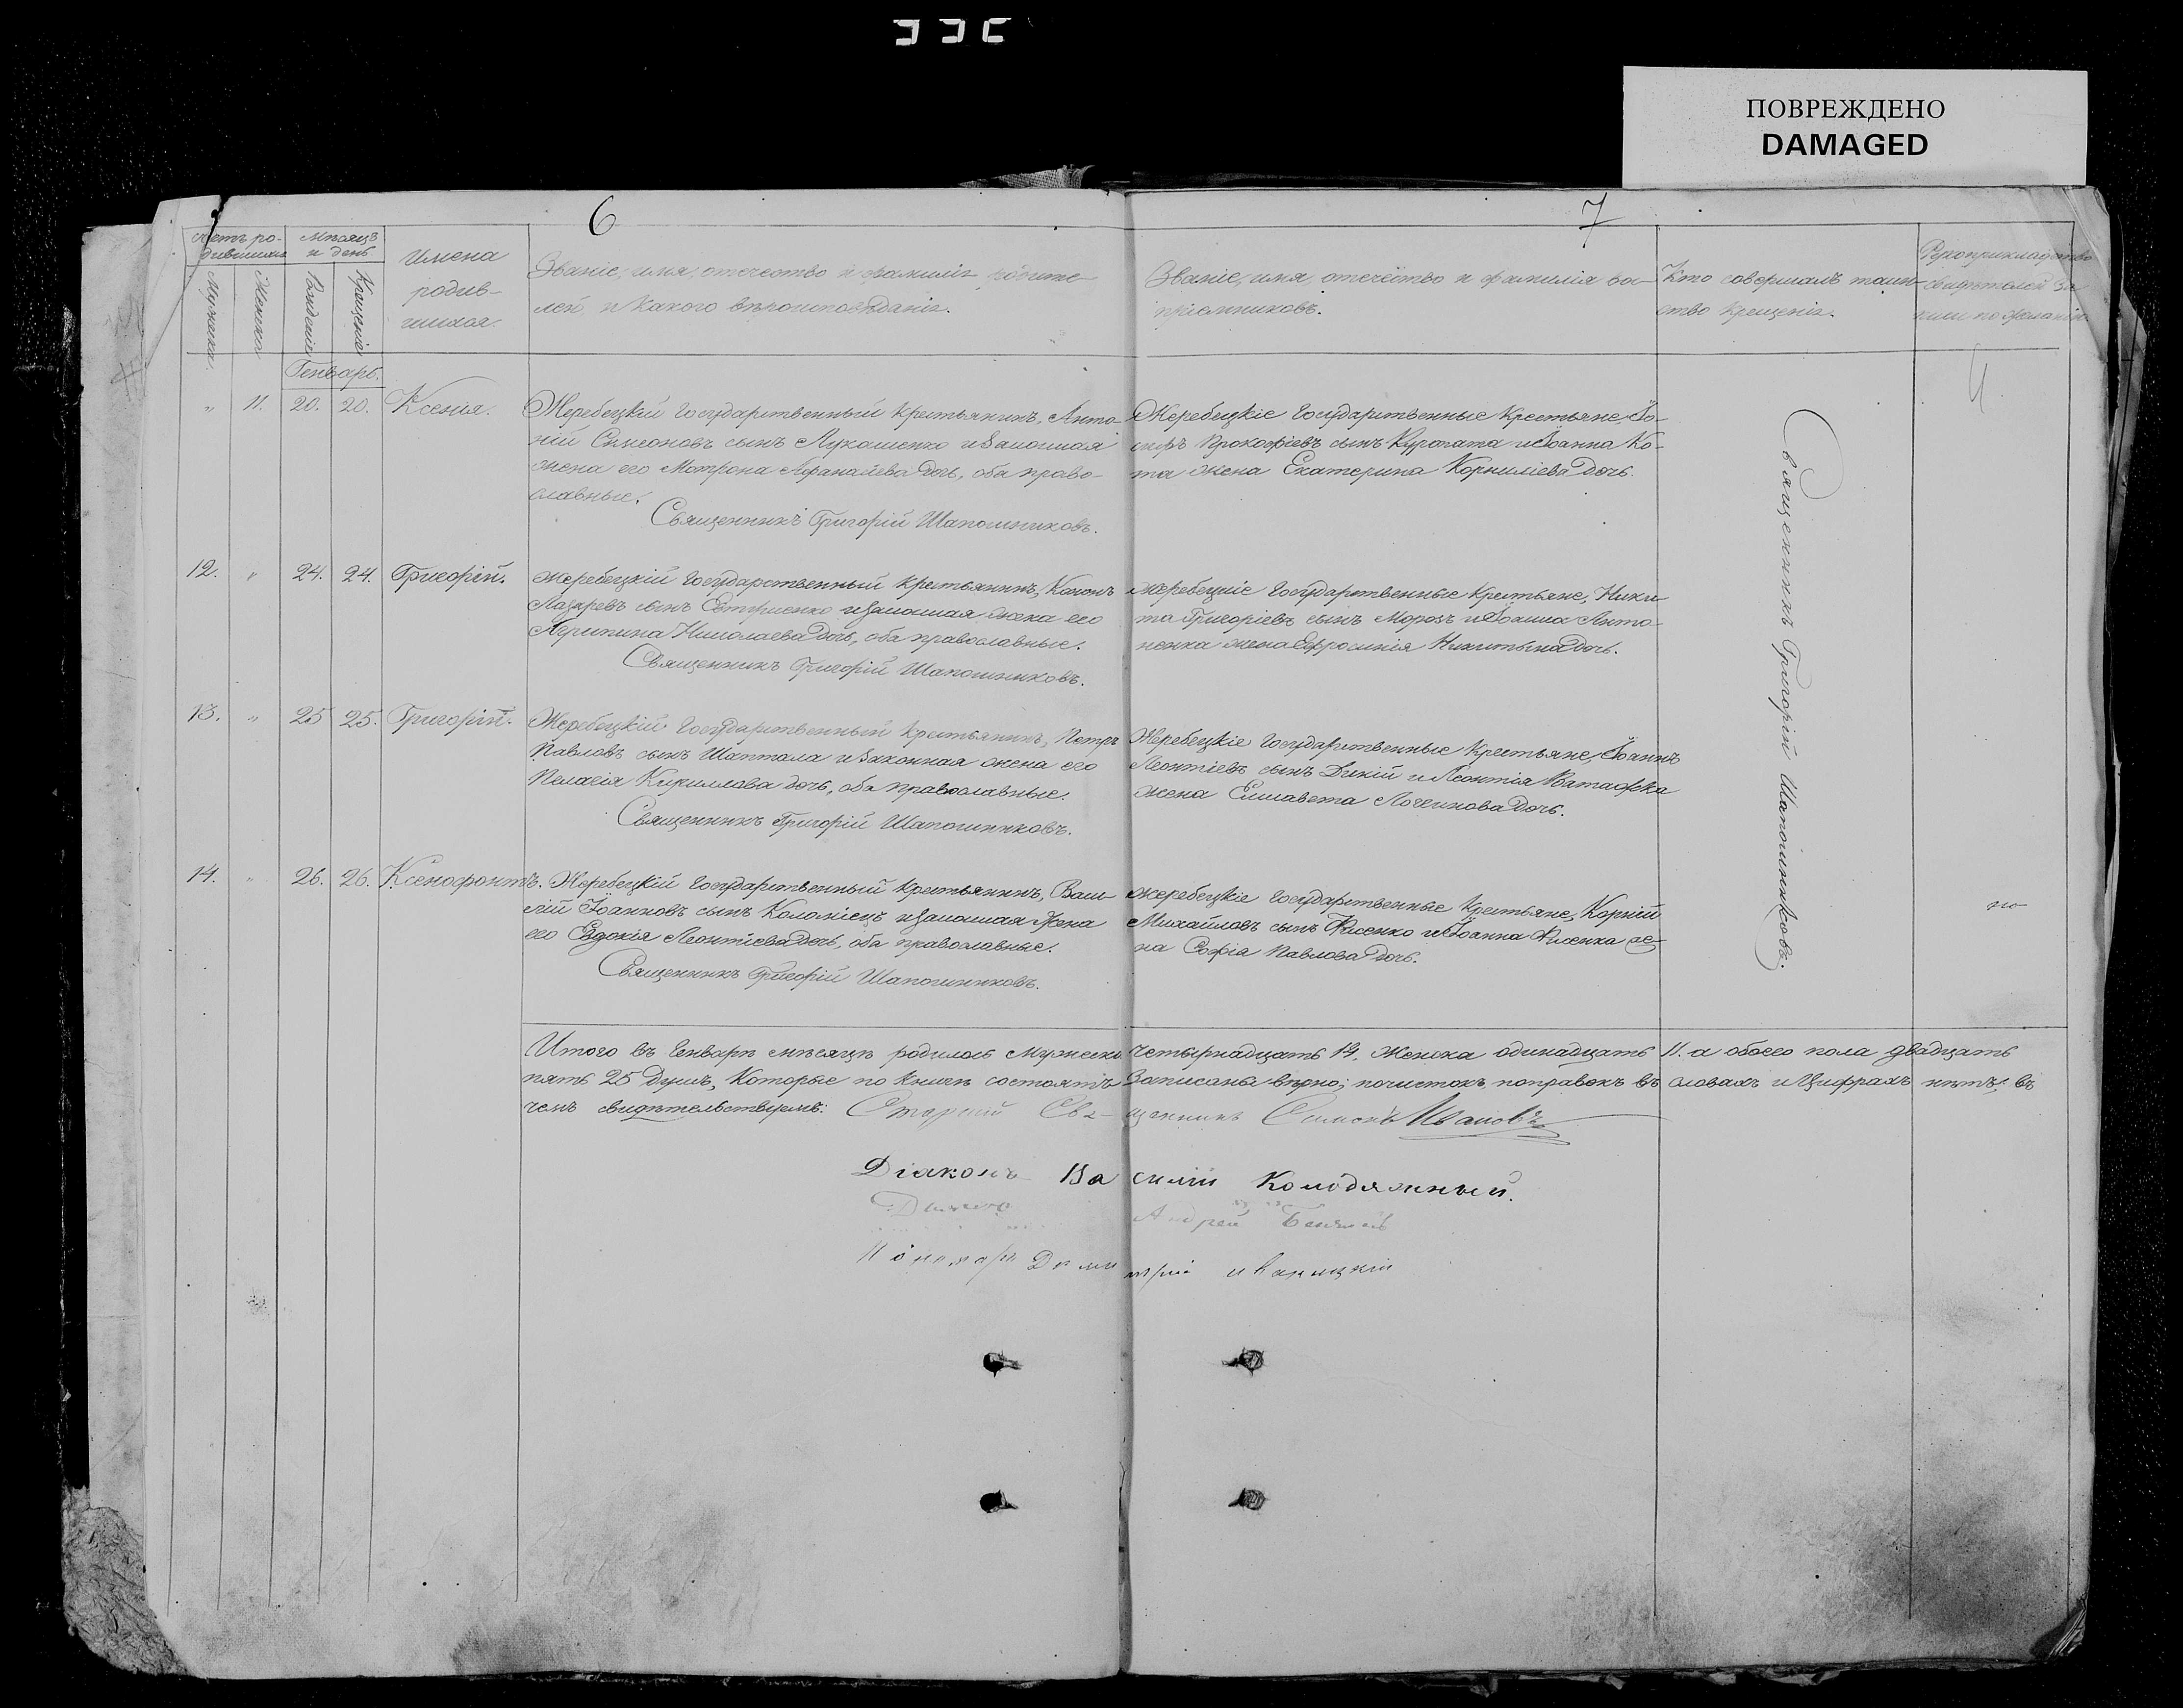 ПОВРЕЖДЕНО
DAMAGED
6
7
Счетъ ро-
дившихся
Мѣсяцъ
и день
Мужеска.
Женска
Рожденія
Крещенія
Имена
родив-
шихся.
Званіе, имя, отечество и фамилія родите-
лей, и какого вѣроисповѣданія.
Званіе, имя, отечество и фамилія во-
спріемниковъ.
Кто совершалъ таин-
ство крещенія.
Рукоприкладство
свидѣтелей за-
писи по желанію.
Генварь.
„ 11. 20. 20. Ксенія.
Жеребецкій Государственный крестьянинъ, Анто-
ній Симеоновъ сынъ Лукашенко и законная
жена его Мотрона Афанасіева дочь, оба право-
славные.
Священникъ Григорій Шапошниковъ.
Жеребецкіе Государственные крестьяне, Іо-
сифъ Прокофіевъ сынъ Куропата и Іоанна Ко-
та жена Екатерина Корниліева дочь.
12. „ 24. 24. Григорій.
Жеребецкій Государственный крестьянинъ, Кононъ
Лазаревъ сынъ и законная жена его
Агрипина Николаева дочь, оба православные.
Священникъ Григорій Шапошниковъ.
Жеребецкіе Государственные крестьяне, Ники-
та Григоріевъ сынъ Морозъ и Анто-
ненка жена Ефросинія Никитына дочь.
13. „ 25 25. Григорій.
Жеребецкій Государственный крестьянинъ, Петръ
Павловъ сынъ Шаптала и законная жена его
Пелагія Кириллова дочь, оба православные.
Священникъ Григорій Шапошниковъ.
Жеребецкіе Государственные крестьяне, Іоаннъ
Леонтіевъ сынъ Дикій и Леонтія
жена Елисавета Логгинова дочь.
14. „ 26. 26. Ксенофонтъ.
Жеребецкій Государственный крестьянинъ, Васи-
лій Іоанновъ сынъ Коломіецъ и законная жена
его Евдокія Леонтіева дочь, оба православные.
Священникъ Григорій Шапошниковъ.
Жеребецкіе Государственные крестьяне, Корній
Михайловъ сынъ Фисенко и Іоанна Фисенка же-
на Софія Павлова дочь.
Священникъ Григорій Шапошниковъ.
Итого въ Генварѣ мѣсяцѣ родилось мужеска четырнадцать 14. женска одинадцать 11. а обоего пола двадцать
пять 25 душъ, которые по книгѣ состоятъ записаны вѣрно; почистокъ поправокъ въ словахъ и цифрахъ нѣтъ; въ
чемъ свидѣтельствуемъ: Старшій Священникъ Симеонъ Ивановъ
Діаконъ Василій Колодяжный.
Андрей
Пономарь Димитрій Иваницкій